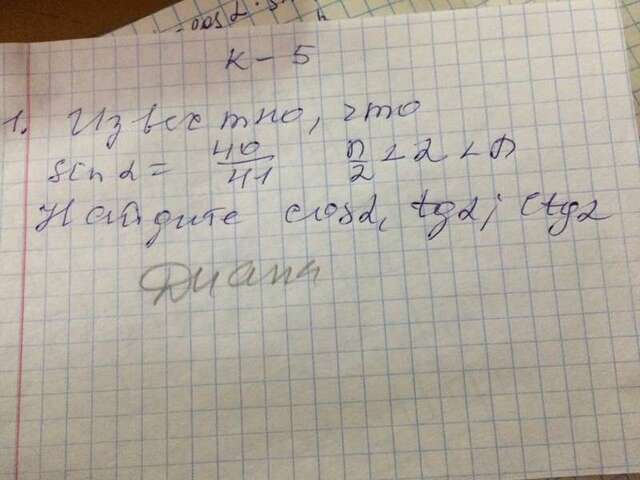 К - 5
1. Известно, что
sin α = 40/41 π/2 < α < π
Найдите cos α, tg α; ctg α
Диана